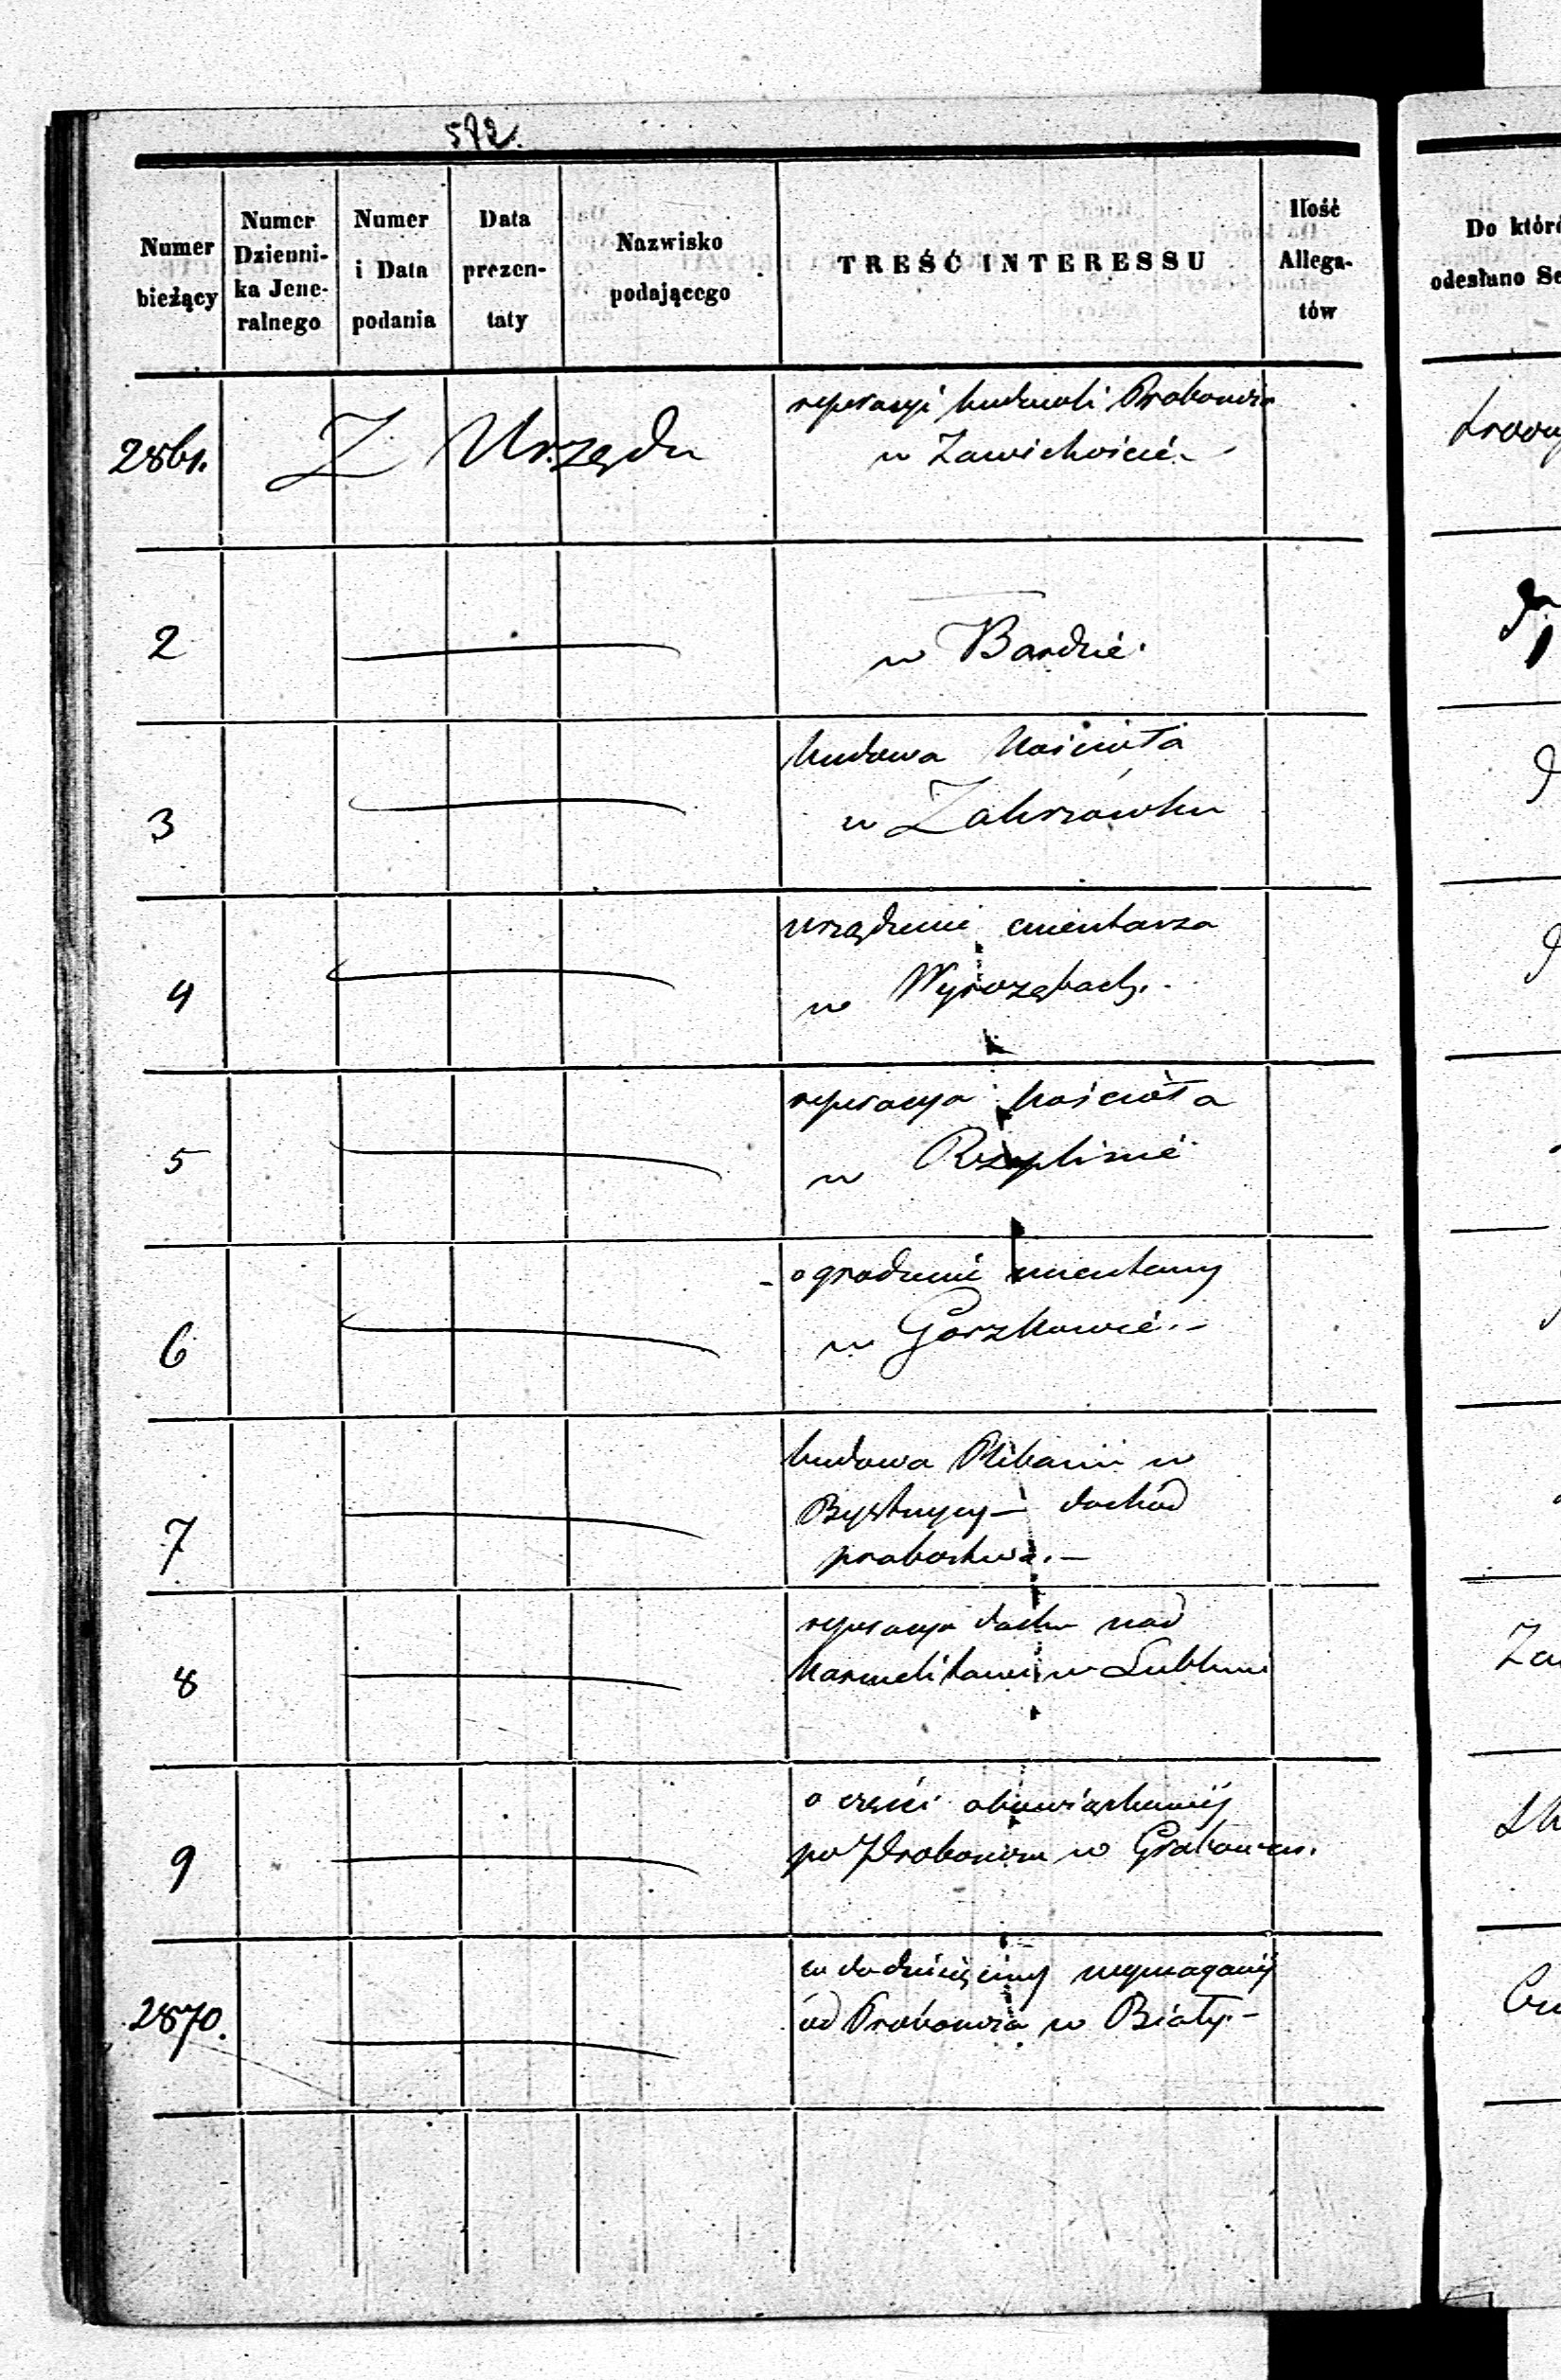 572.
Numer bieżący
Numer Dziennika Jeneralnego
Numer i Data podania
Data prezentaty
Nazwisko podającego
TREŚĆ INTERESSU
Ilość Allegatów
Do które
odesłano Se
2861. Z Urzędu
reperacyi budowli Probostwa
w Zawichoście
2
w Bardzie
3
budowa kościoła
w Zakrzówku
4
urządzenie cmentarza
w Wyrozębach.
5
reperacya kościoła
w Rzeplinie
6
ogrodzenie cmentarzy
w Gorzkowie.
7
budowa Plibanii w
Bystrzycy - dochód
probostwa.
8
reperacya dachu nad
Karmelitami w Lublinie
9
o części obowiązkowej
po Proboszczu w Grabowcu.
2870.
co do dziesięciny wymaganej
od Probostwa w Biały.